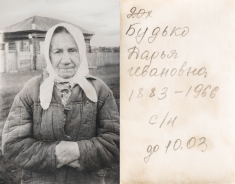 20х
Будько
Дарья
Ивановна
1883-1966
с/н
до 10.03